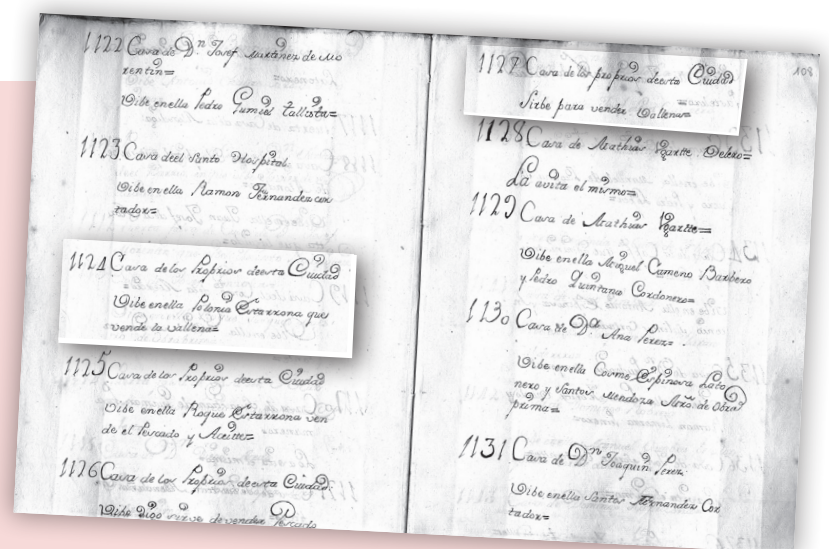 1122 Casa de Dn. Josef Martinez de Mo
rentin=
Vibe en ella Pedro Gumiel tallista=
1123 Casa del Santo Ospital
Vibe en ella Ramon Fernandez cor
tador=
1124 Casa de los Propios de esta Ciudad
Vibe en ella Polonia Estarrona que
vende la vallena=
1125 Casa de los Propios de esta Ciudad
Vibe en ella Roque Estarrona ven
de el Pescado y Aceite=
1126 Casa de los Propios de esta Ciudad
Vibe Digo sirve de vender Pescado
108
1127 Casa de los propios de esta Ciudad
Sirbe para vender Vallena=
1128 Casa de Mathias Ugartte
La avita el mismo=
1129 Casa de Mathias Ugartte=
Vibe en ella Miguel Cameno Barbero
y Pedro Quintana Cordonero=
1130 Casa de Da. Ana Perez=
Vibe en ella Cosme Espinosa Lato
nero y Santos Mendoza Mro. de Obra
prima=
1131 Casa de Dn. Joaquin Perez.
Vibe en ella Santos Fernandez Cor
tador=